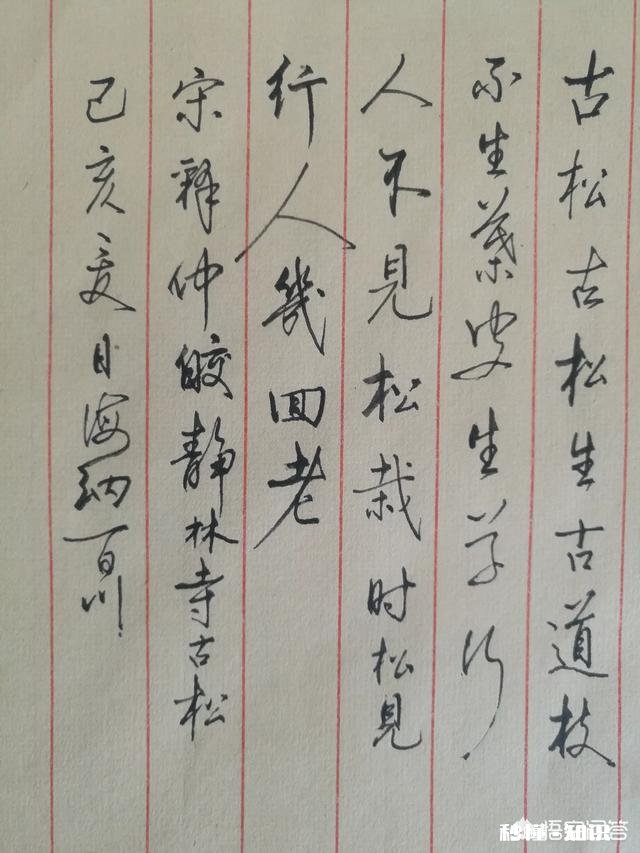 古松古松生古道枝
不生葉皮生草行
人不見松栽时松見
行人幾回老
宋釋仲皎静林寺古松
己亥夏日海纳百川